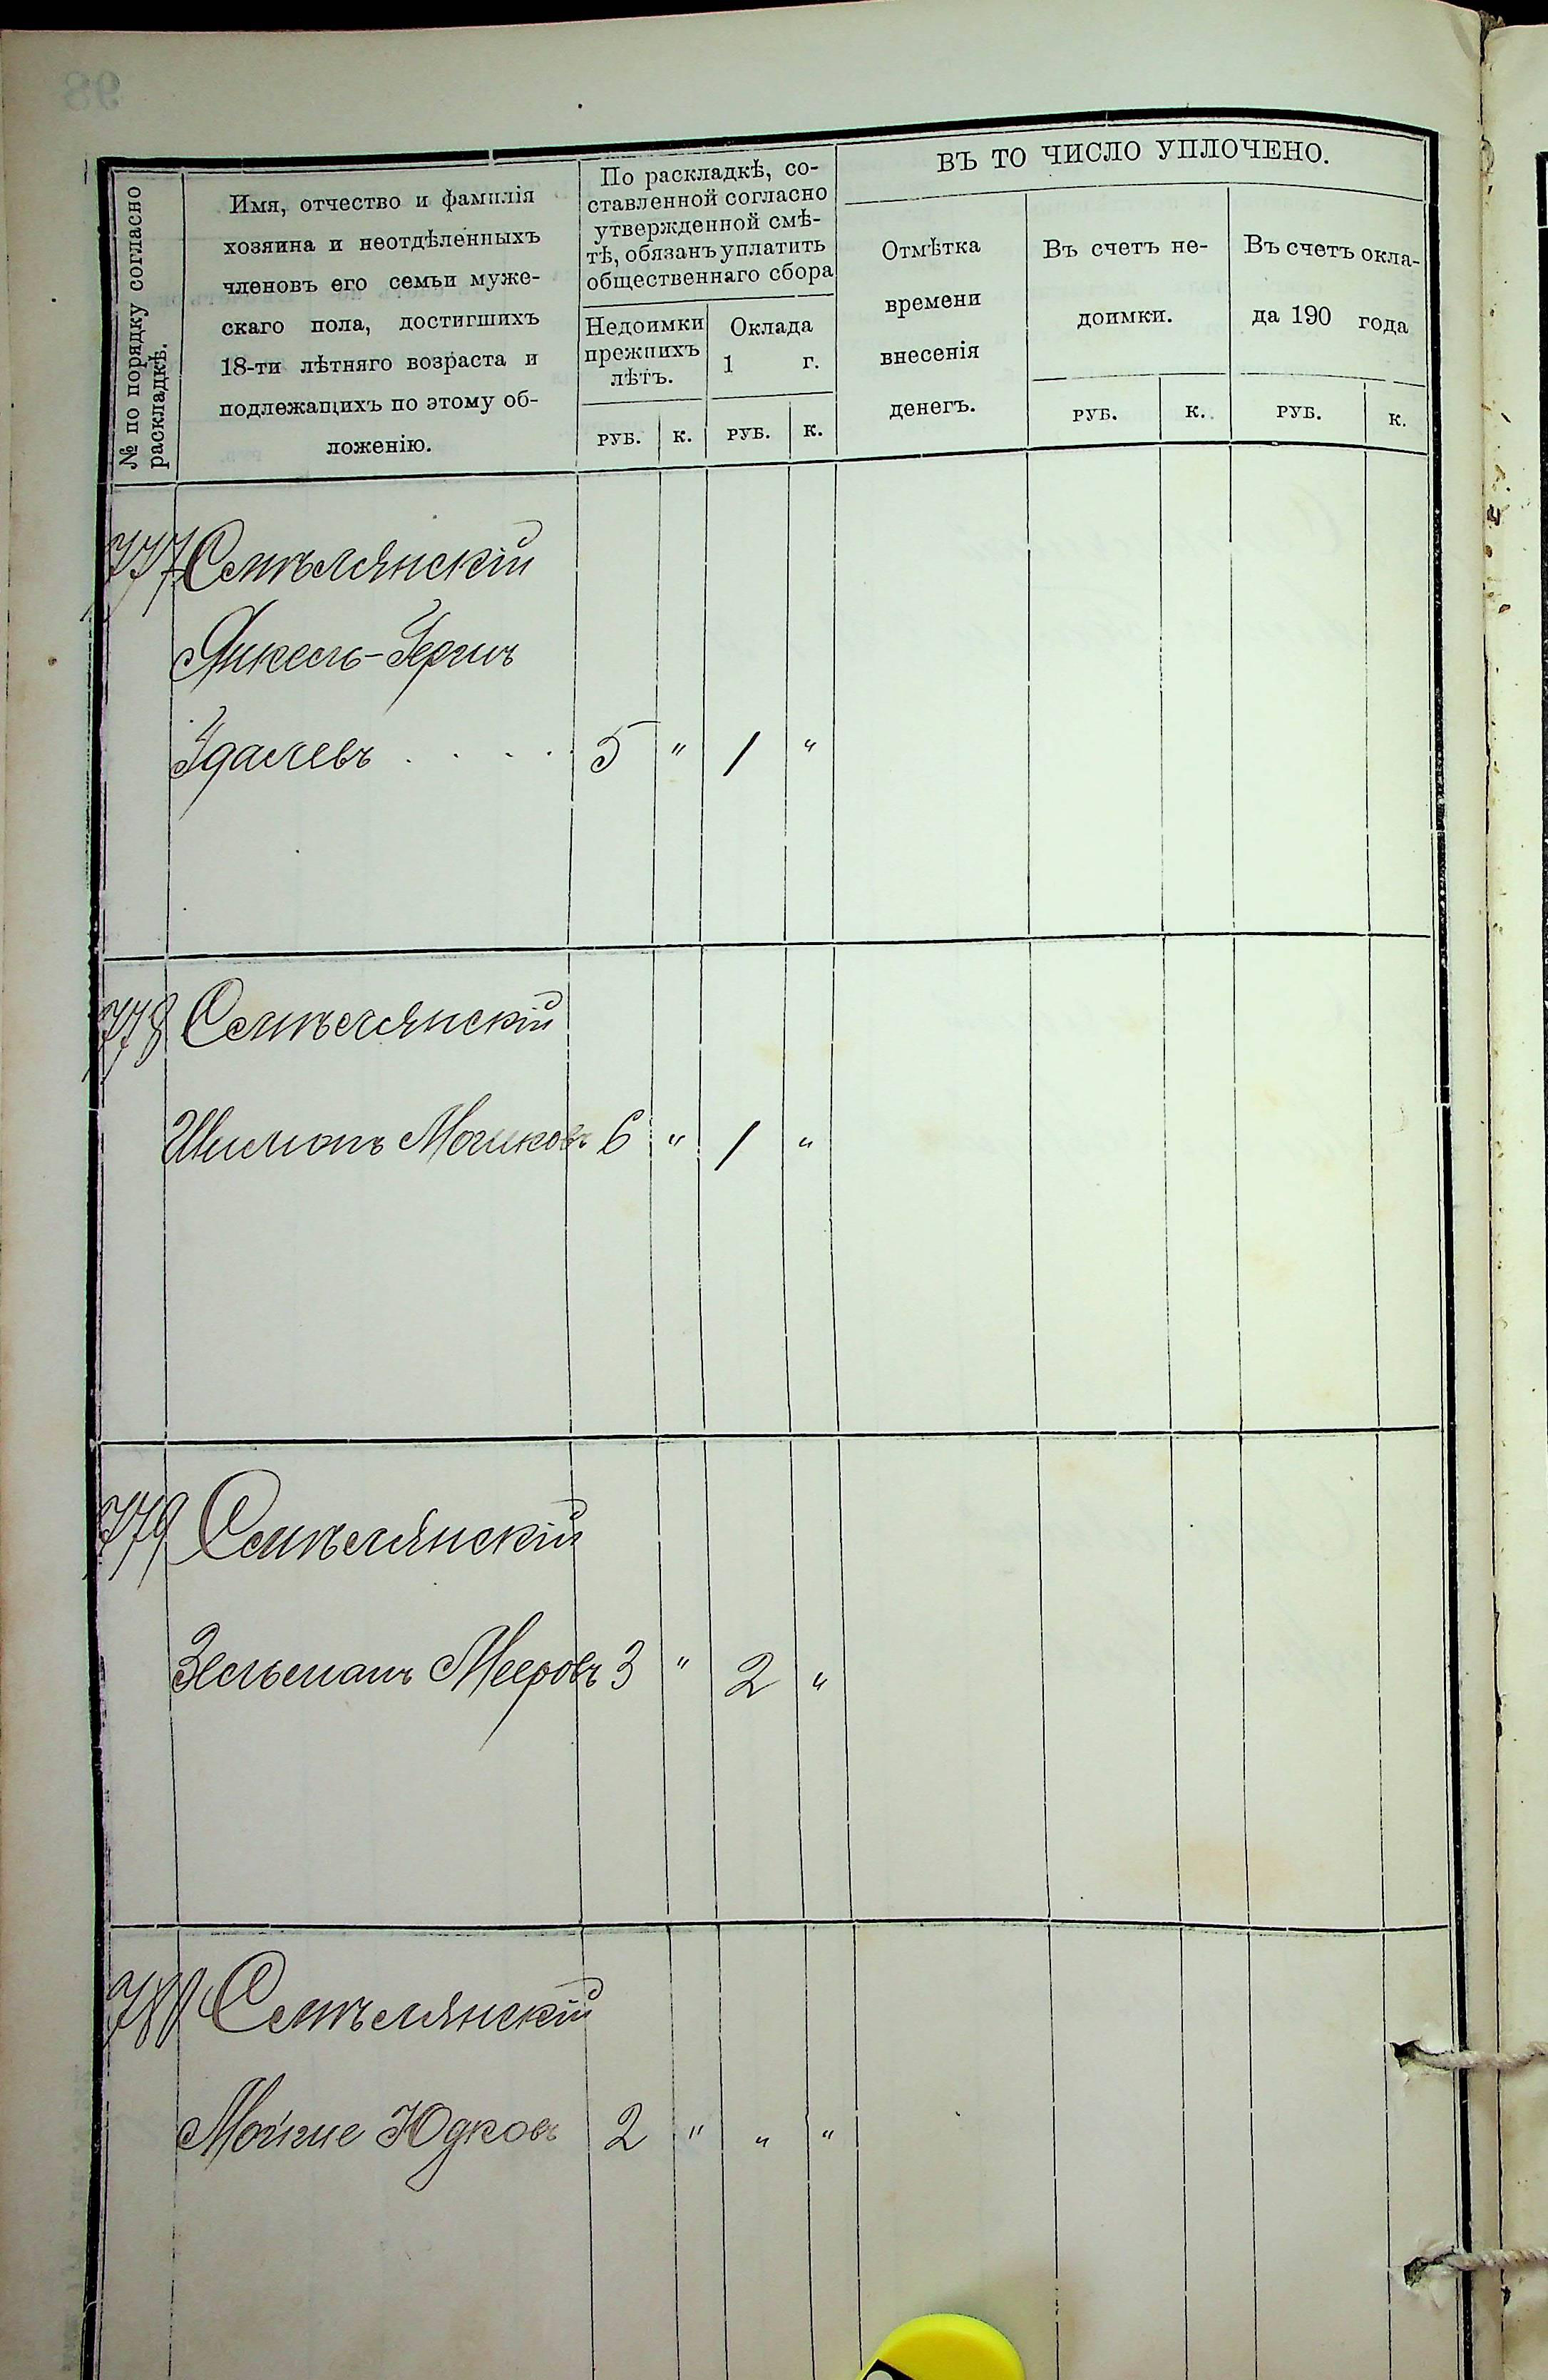 № по порядку согласно
раскладкѣ.
Имя, отчество и фамилія
хозяина и неотдѣленныхъ
членовъ его семьи муже-
скаго пола, достигшихъ
18-ти лѣтняго возраста и
подлежащихъ по этому об-
ложенію.
По раскладкѣ, со-
ставленной согласно
утвержденной смѣ-
тѣ, обязанъ уплатить
общественнаго сбора
Недоимки
прежнихъ
лѣтъ.
Оклада
1 г.
РУБ. К. РУБ. К.
ВЪ ТО ЧИСЛО УПЛОЧЕНО.
Отмѣтка
времени
внесенія
денегъ.
Въ счетъ не-
доимки.
Въ счетъ окла-
да 190 года
РУБ. К. РУБ. К.
777 Смѣлянскій
Янкель-Герш
Удалевъ . . . . 5 " 1 "
778 Смѣлянскій
Шимонъ Мошковъ 6 " 1 "
779 Смѣлянскій
Зельманъ Мееровъ 3 " 2 "
780 Смѣлянскій
Мойше Юдковъ 2 " " "